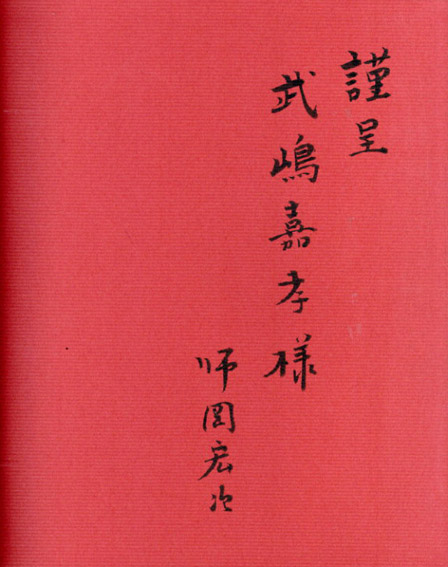 謹呈
武嶋嘉孝様
师岡宏次